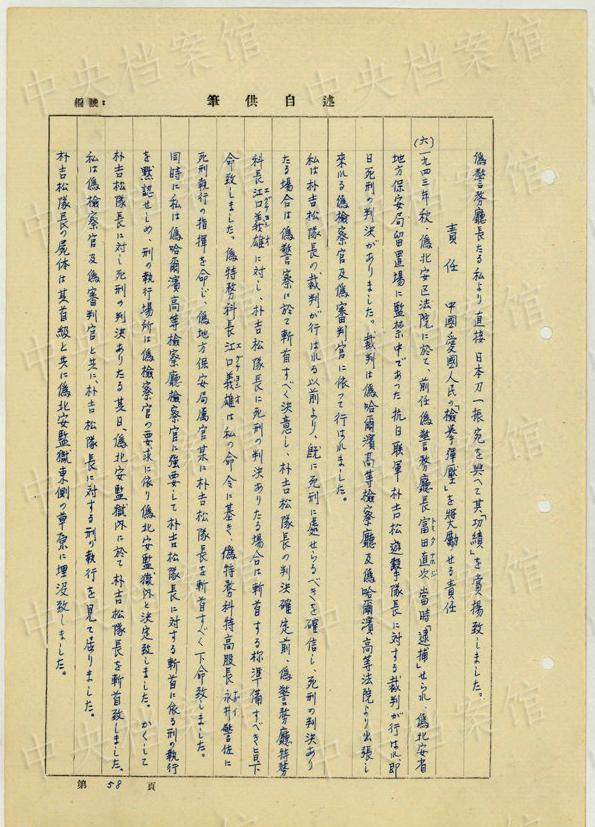 編號：
述自供筆
偽警務廳長たる私より直接日本刀一振宛を與へて其「功績」を賞揚致しました。
責任　中國愛國人民の「檢挙彈壓」を奬励せる責任
(六)一九四三年秋、偽北安区法院に於て、前任偽警務廳長富田直次当時「逮捕」せられ、偽北安省
地方保安局留置場に監禁中であった抗日联軍朴吉松遊擊隊長に対する裁判が行はれ、即
日死刑の判決がありました。裁判は偽哈爾濱高等検察廳及偽哈爾濱高等法院より出張し
來れる偽檢察官及偽審判官に依って行はれました。
私は朴吉松隊長の裁判が行はれる以前より、既に死刑に處せらるべきを確信し、死刑の判決あり
たる場合は偽警察に於て斬首すべく決意し、朴吉松隊長の判決確定前、偽警務廳特務
科長江口義雄エグチヨシオに対し、朴吉松隊長に死刑の判決ありたる場合は斬首する様準備すべき旨下
命致しました。偽特務科長江口義雄エグチヨシオは私の命令に基き、偽特務科特高股長永井ナガイ警佐に
死刑執行の指揮を命じ、偽地方保安局属官某に朴吉松隊長を斬首すべく下命致しました。
同時に私は偽哈爾濱高等検察廳検察官に強要して朴吉松隊長に対する斬首に依る刑の執行
を黙認せしめ、刑の執行場所は偽檢察官の要求に依り偽北安監獄内と決定致しました。かくして
朴吉松隊長に対し死刑の判決ありたる其日、偽北安監獄内に於て朴吉松隊長を斬首致しました。
私は偽檢察官及偽審判官と共に、朴吉松隊長に対する刑の執行を見て居りました。
朴吉松隊長の屍体は其首級と共に偽北安監獄東側の草原に埋没致しました。
第 58 頁
中央档案馆